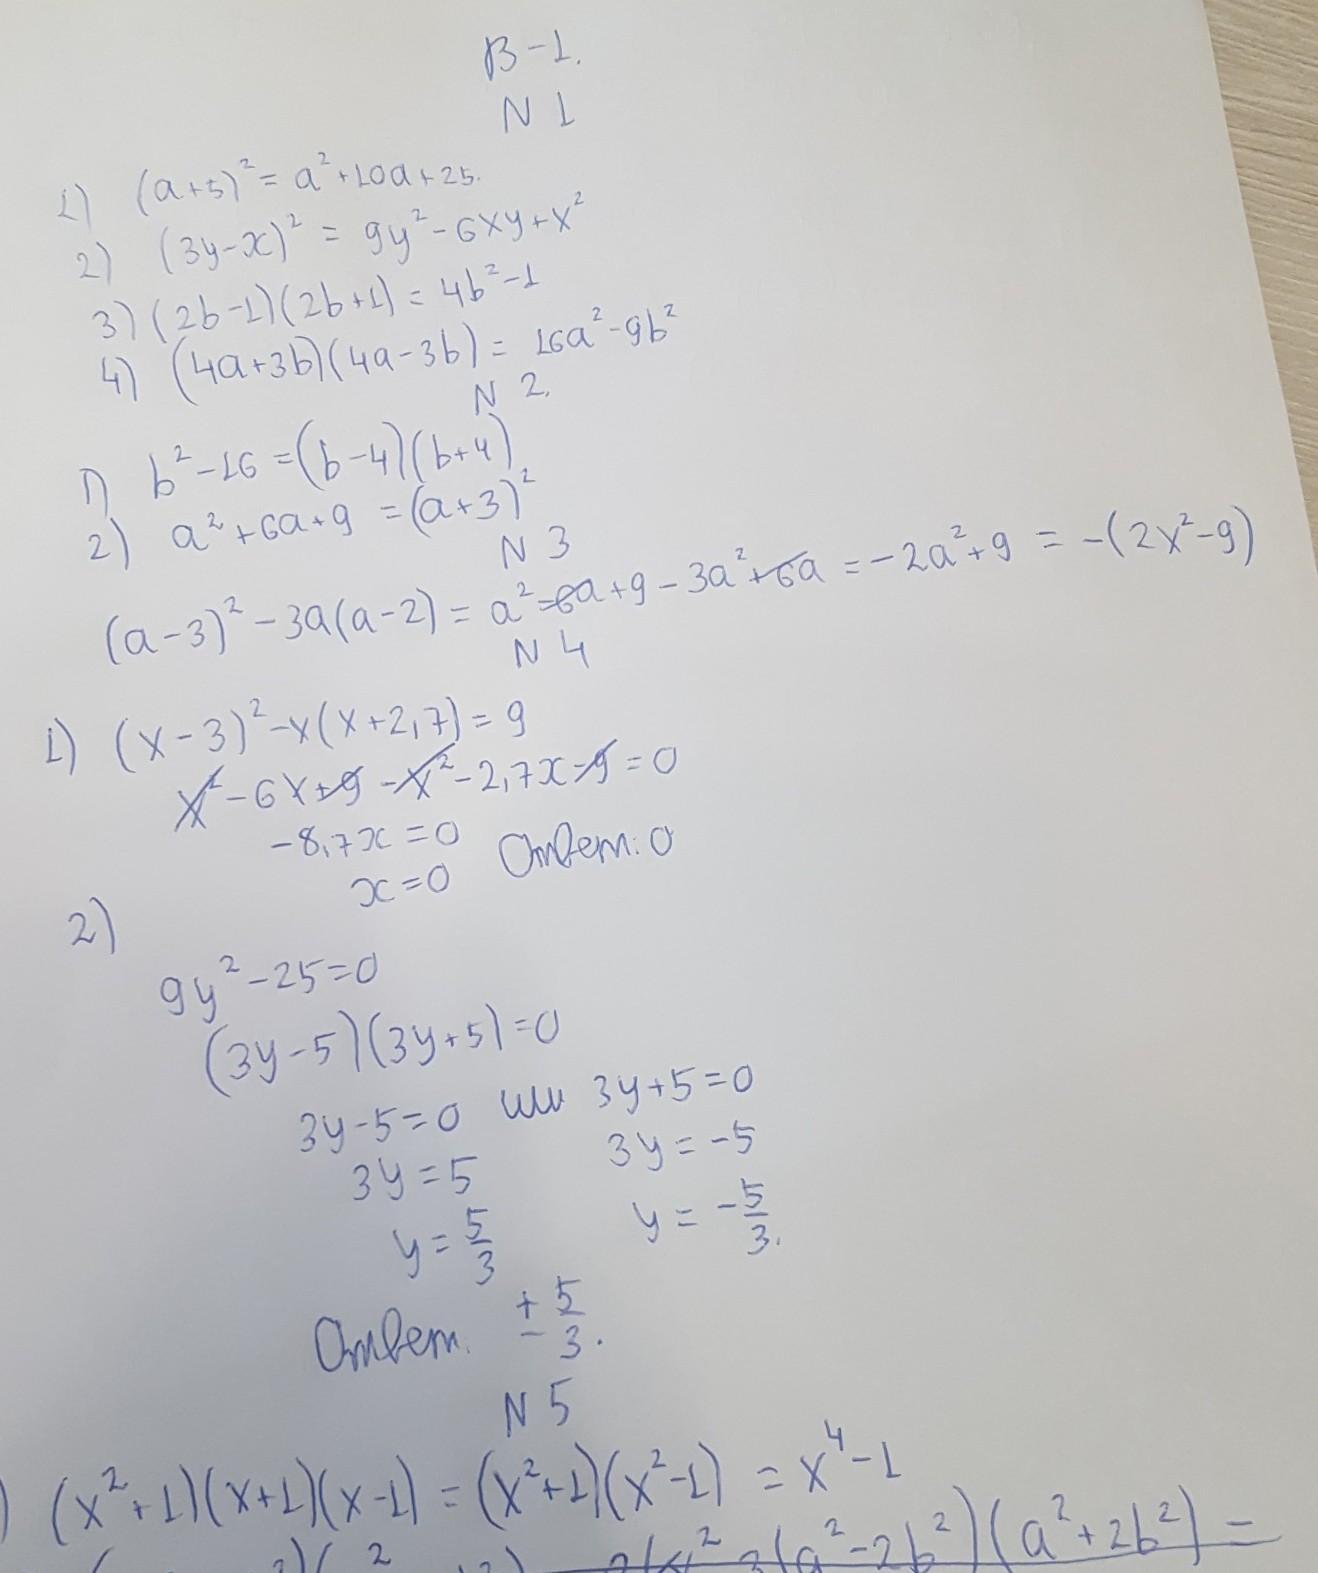 В-1.
N 1
1) (a+5)² = a²+10a+25.
2) (3y-x)² = 9y²-6xy+x²
3) (2b-1)(2b+1) = 4b²-1
4) (4a+3b)(4a-3b) = 16a²-9b²
N 2.
1) b²-16 = (b-4)(b+4)
2) a²+6a+9 = (a+3)²
N 3
(a-3)²-3a(a-2) = a²-6a+9-3a²+6a = -2a²+9 = -(2x²-9)
N 4
1) (x-3)²-x(x+2,7) = 9
x²-6x+9-x²-2,7x-9=0
-8,7x=0
x=0 Ответ: 0
2)
9y²-25=0
(3y-5)(3y+5)=0
3y-5=0 или 3y+5=0
3y=5 3y=-5
y=5/3 y=-5/3.
Ответ. ±5/3.
N 5
) (x²+1)(x+1)(x-1) = (x²+1)(x²-1) = x⁴-1
(a²-2b²)(a²+2b²) =